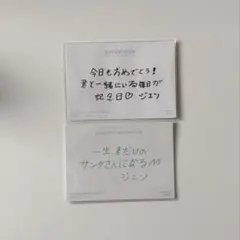 今日もおめでとう!
君と一緒にいる毎日が
誕生日♡ ジェン
一生 君だけの
サンタさんになるよ
ジェン